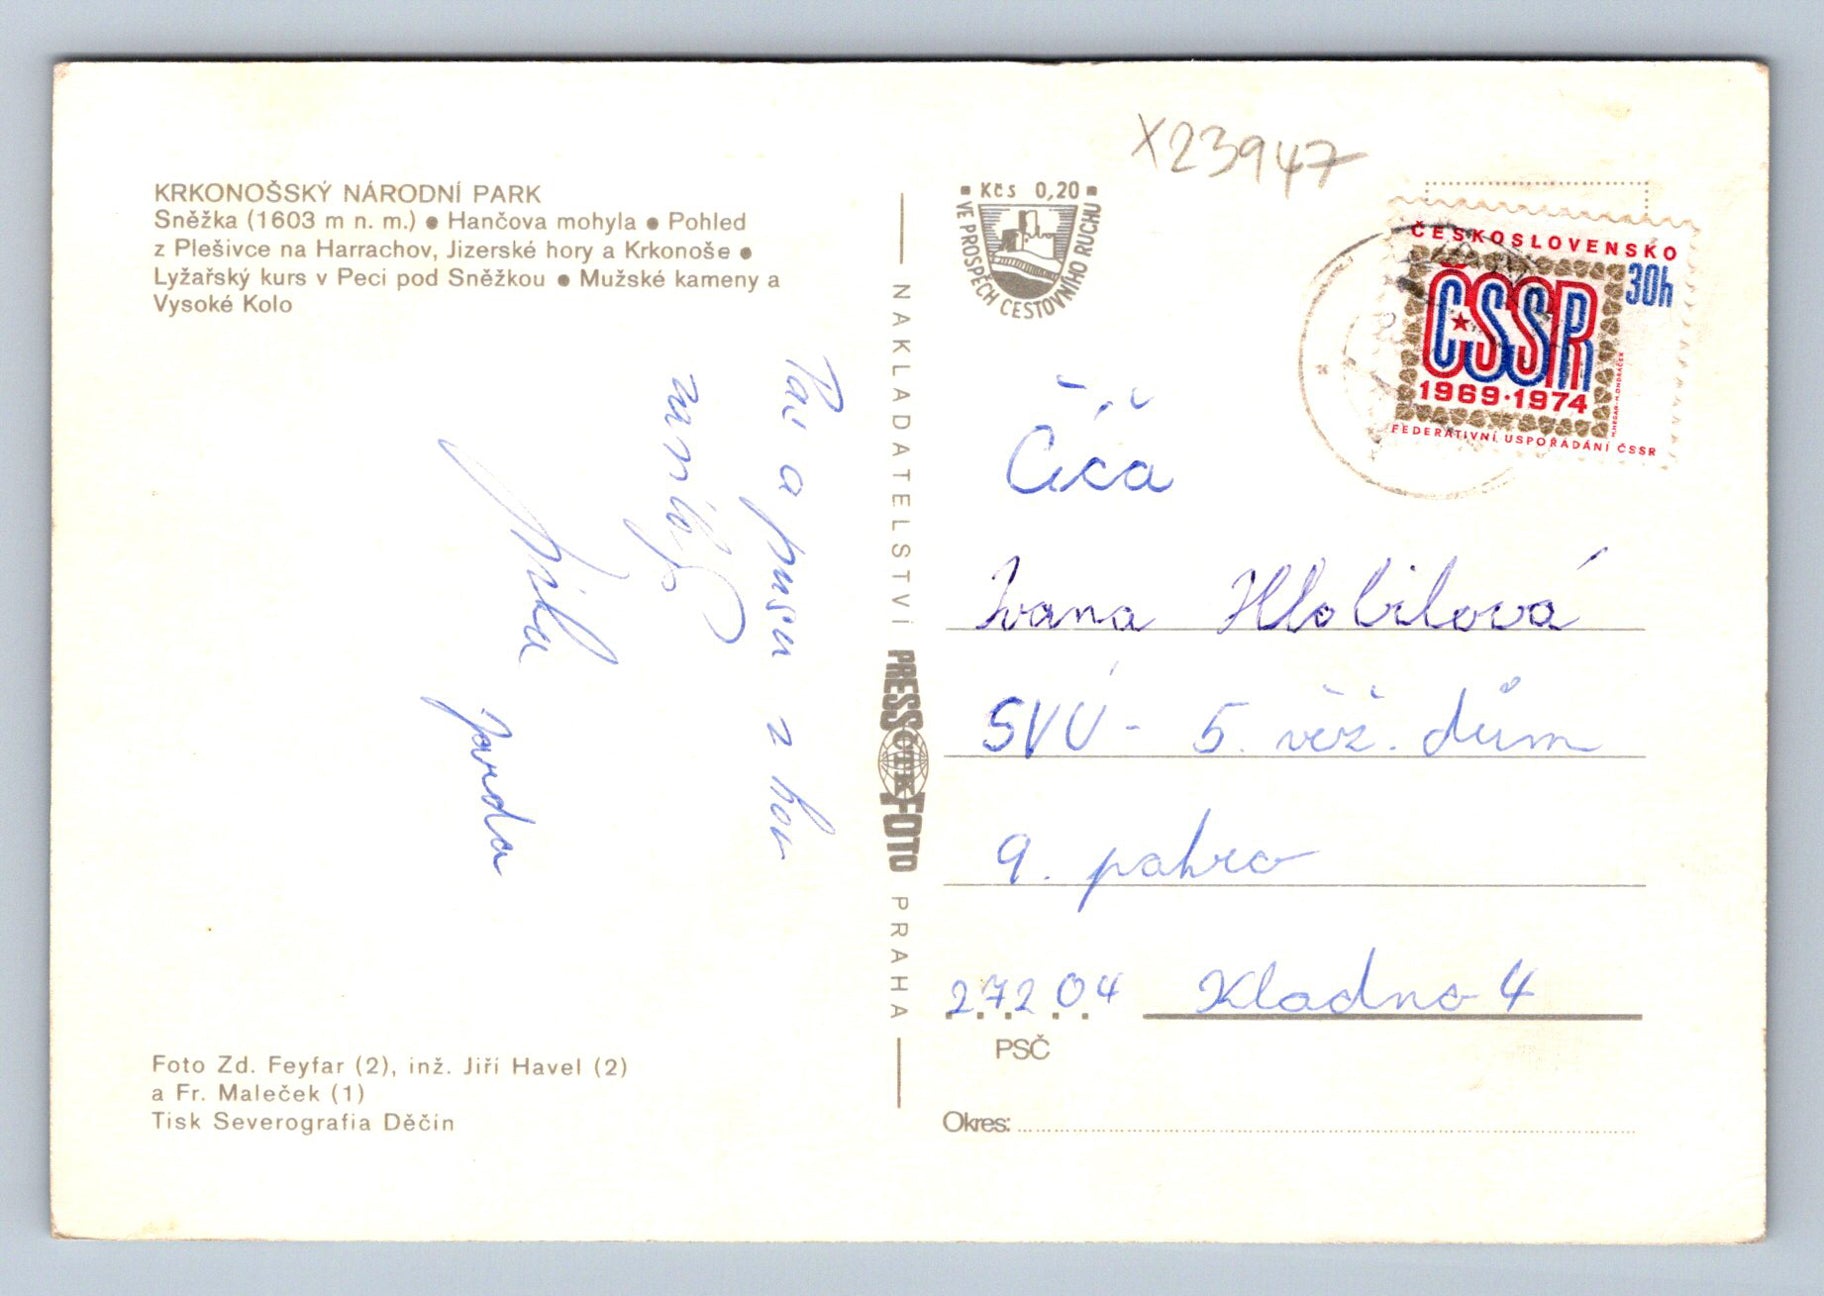 X23947
KRKONOŠSKÝ NÁRODNÍ PARK
Sněžka (1603 m n. m.) ● Hančova mohyla ● Pohled
z Plešivce na Harrachov, Jizerské hory a Krkonoše ●
Lyžařský kurs v Peci pod Sněžkou ● Mužské kameny a
Vysoké Kolo
a pusu z hor
zasílá
Jarda
Foto Zd. Feyfar (2), inž. Jiří Havel (2)
a Fr. Maleček (1)
Tisk Severografia Děčín
NAKLADATELSTVÍ PRESSFOTO PRAHA
ČTK
Kčs 0,20
VE PROSPĚCH CESTOVNÍHO RUCHU
ČESKOSLOVENSKO
30h
ČSSR
1969·1974
FEDERATIVNÍ USPOŘÁDÁNÍ ČSSR
Číča
Ivana Hlobilová
SVÚ - 5. věž. dům
9. patro
27204 Kladno 4
PSČ
Okres: